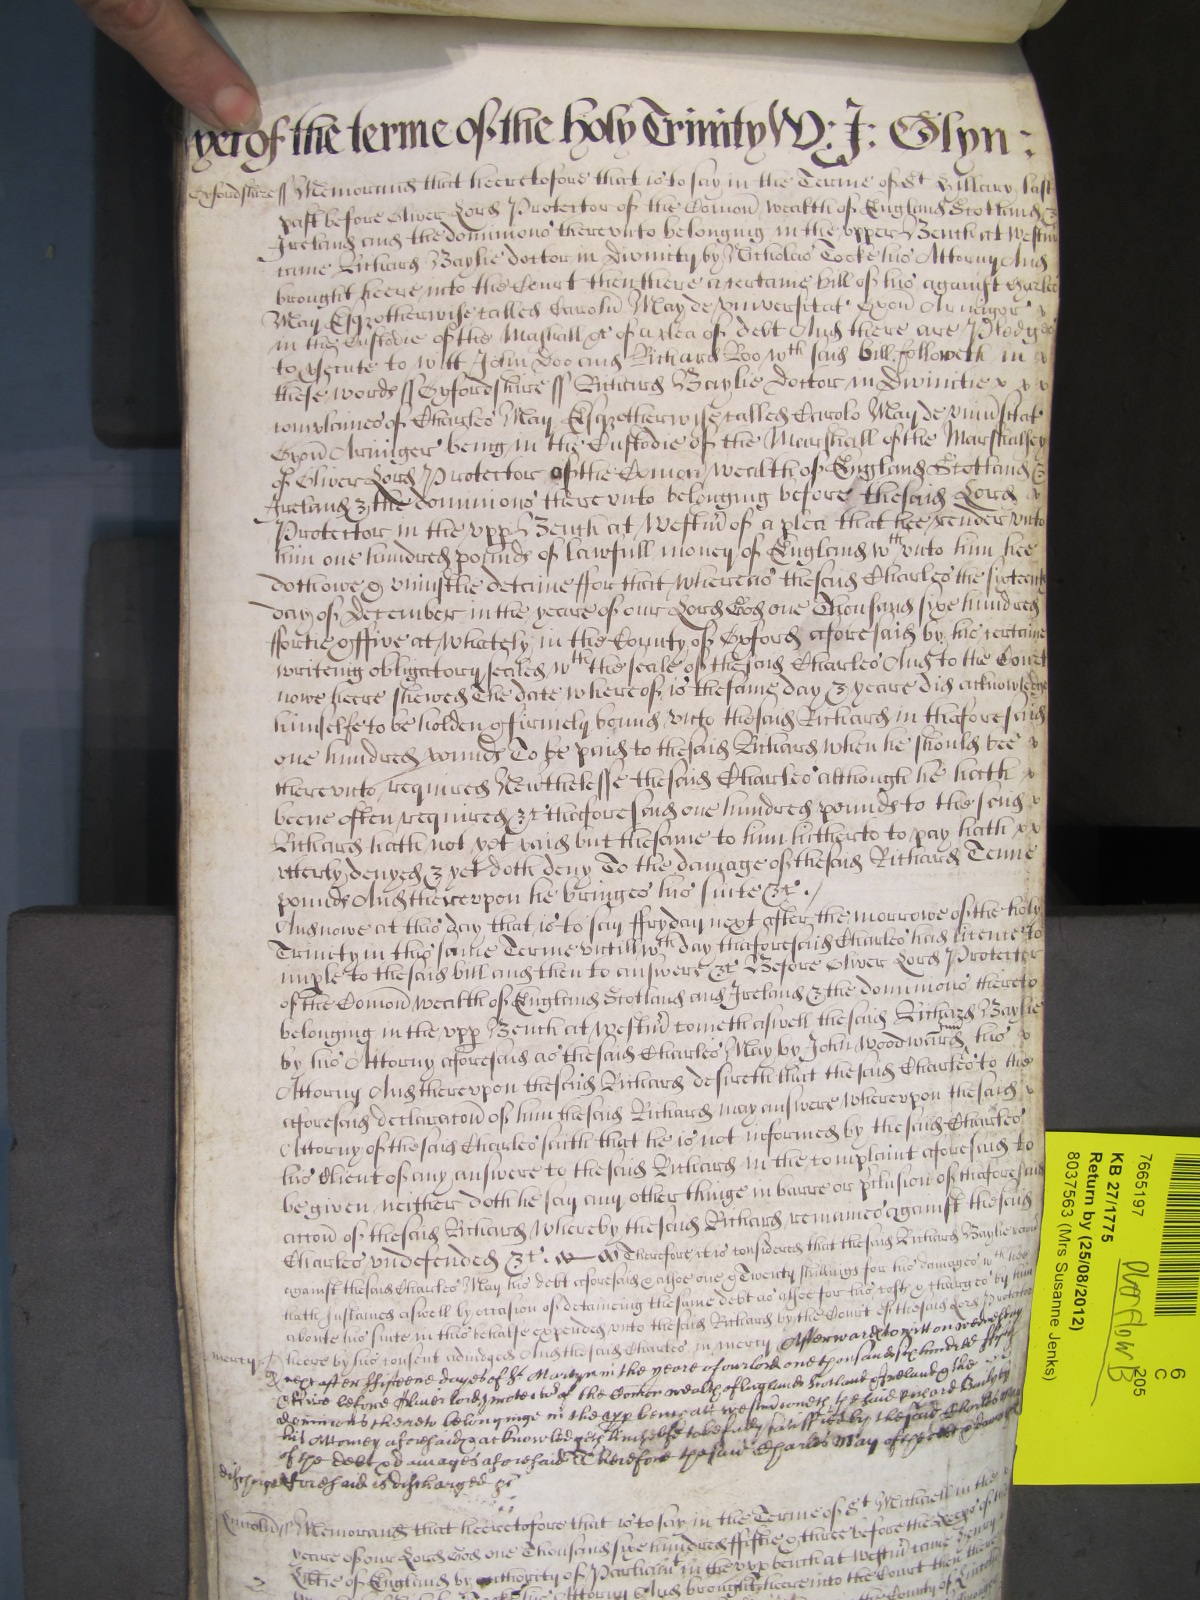 yet of the terme of the holy Trinity W: J: Glyn:
Oxfordshire ss Memorand that heeretofore that is to say in the Terme of St Hillary last
past before Oliver Lord Protector of the Comon wealth of England Scotland &
Ireland and the dominions there vnto belonging in the vpper Bench at Westm
came Richard Baylie doctor in divinity by Nicholas Cocke his Attorny And
brought heere into the Court then there a certaine bill of his against Charles
May Esqr otherwise called Carolu May de vniversitat Oxon Armiger
in the Custodie of the Marshall &c of a plea of debt And there are Pledges
to psecute to witt John Doo and Richard Roo wch said bill followeth in
these words ss Oxfordshire ss Richard Baylie doctor in Divinitie x x x
complaines of Charles May Esqr otherwise called Carolo May de vniu'sitat
Oxon Armiger being in the Custodie of the Marshall of the Marshalsey
of Oliver Lord Protector of the Comon wealth of England Scotland &
Ireland & the dominions there vnto belonging before the said Lord
Protector in the vpp Bench at Westm of a plea that hee render vnto
him one hundred pounds of lawfull money of England wch vnto him hee
doth owe & vniustlie detaine ffor that whereas the said Charles the sixteenth
day of December in the yeare of our Lord God one Thousand sixe hundred
ffortie & ffive at Whately in the County of Oxford aforesaid by his certaine
writeing obligatory sealed wth the seale of the said Charles And to the Court
nowe heere shewed The date whereof is the same day & yeare did acknowledge
himselfe to be holden & firmely bound vnto the said Richard in thaforesaid
one hundred pounds To be paid to the said Richard when he should bee
there vnto required Neu'thelesse the said Charles although he hath
beene often required &c thaforesaid one hundred pounds to the said
Richard hath not yet paid but the same to him hitherto to pay hath x x
vtterly denyed & yet doth deny To the damage of the said Richard Tenne
pounds And therevpon he bringes his suite &c
And nowe at this day that is to say ffryday next after the morrowe of the holy
Trinity in this same Terme vntill wch day thaforesaid Charles had licence to
imple to the said bill and then to answere &c Before Oliver Lord Protector
of the Comon wealth of England Scotland and Ireland & the dominions thereto
belonging in the vpp Bench at Westm cometh aswell the said Richard Baylie
by his Attorny aforesaid as the said Charles May by John Woodward his
Attorny And therevpon the said Richard desireth that the said Charles to the
aforesaid declaracon of him the said Richard may answere wherevpon the said
Attorny of the said Charles saith that he is not informed by the said Charles
his Client of any answere to the said Richard in the complaint aforesaid to
be given neither doth he say any other thinge in barre or p'clusion of thaforesaid
accon of the said Richard whereby the said Richard remaines against the said
Charles vndefended &c Therefore it is considered that the said Richard Baylie recover
against the said Charles May his debt aforesaid & alsoe one & Twenty shillings for his damages wch hee
hath sustained aswell by occasion of detaineing the same debt as alsoe for his costs & charges by him
aboute his suite in this behalfe expended vnto the said Richard by the Court of the said Lord Protector
mercy heere by his consent adiudged And the said Charles in mercy Afterwards to witt on wednesday
next after ffifteene dayes of St Martyn in the yeare of our lord one thousand six hundred ffifty
& ffive before Oliver lord protector of the Comon wealth of England Scotland & Ireland & the
dominions thereto belonginge in the vpp bench att westm cometh the said Richard Baylye
his Attorney aforesaid & acknowledgeth himselfe to be fully satisffied by the said Charles May
of the debt & damages aforesaid Therefore the said Charles May of the debt & damages
discharge aforesaid is discharged &c
Lincoln ss Memorand that heeretofore that is to say in the Terme of St Michaell in the
yeare of our Lord God one Thousand sixe hundred ffiftie & three before the Keeps of the
Litie of England by authority of Parliamt in the vpp bench at Westm came Henry
his Attorny And brought heere into the Court then there
the County of Lincoln
7665197
KB 27/1775
Return by (25/08/2012)
8037563 (Mrs Susanne Jenks)
205
6
C